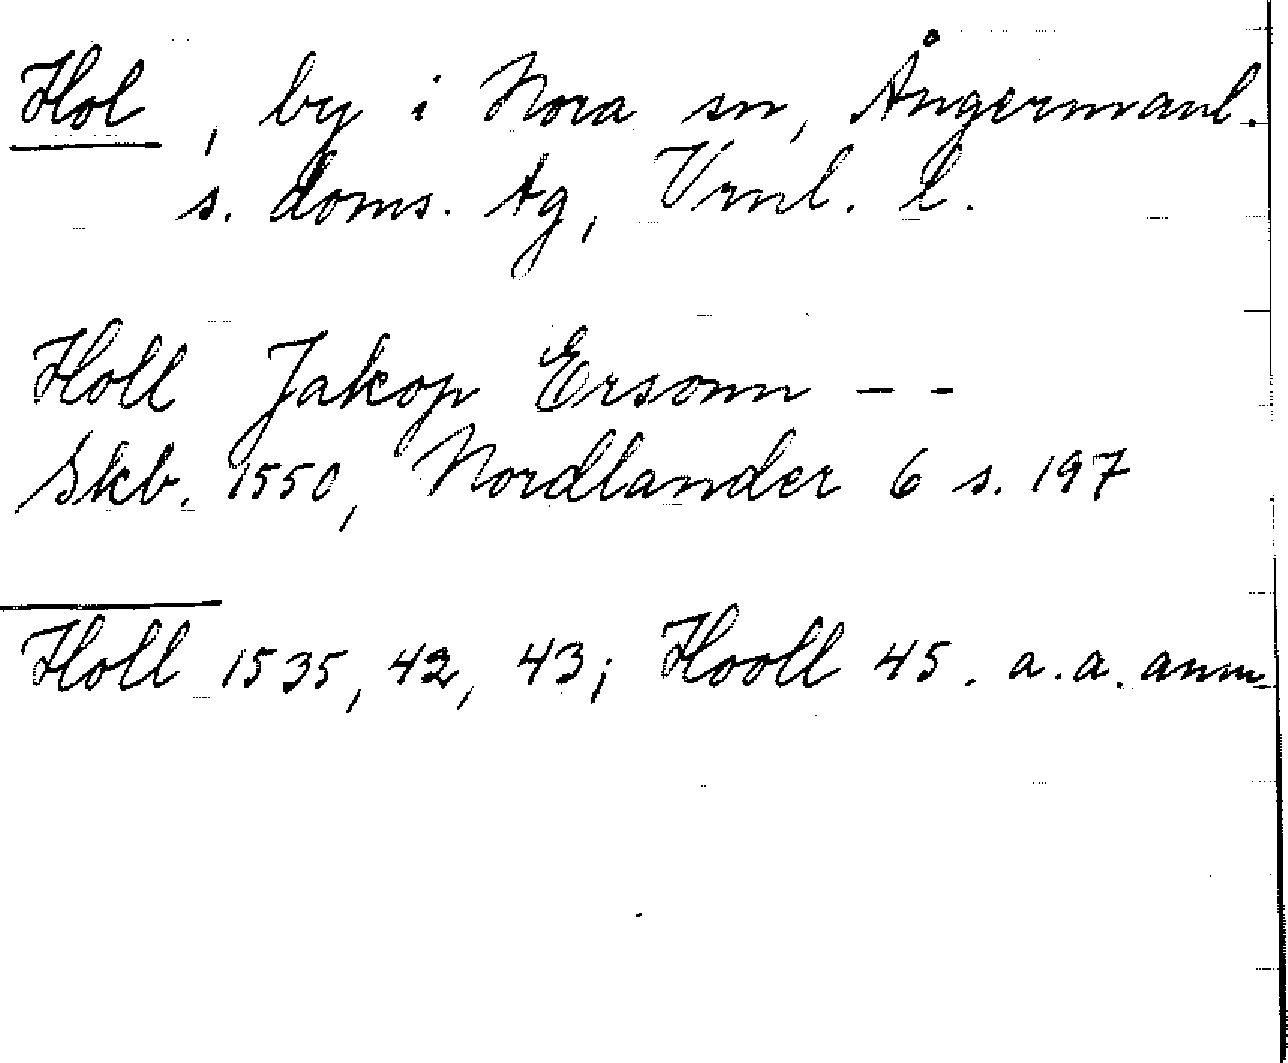 Hol, by i Nora sn, Ångermanl.
s. doms. tg, Vrnl. l.
Holl Jakop Ersonn - -
Skb. 1550, Nordlander 6 s. 197
Holl 1535, 42, 43; Hooll 45. a. a. anm.